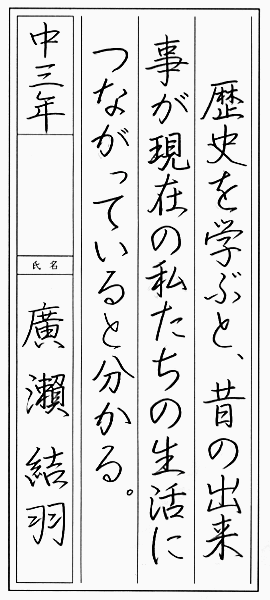 歴史を学ぶと、昔の出来
事が現在の私たちの生活に
つながっていると分かる。
中三年
氏名
廣瀨結羽